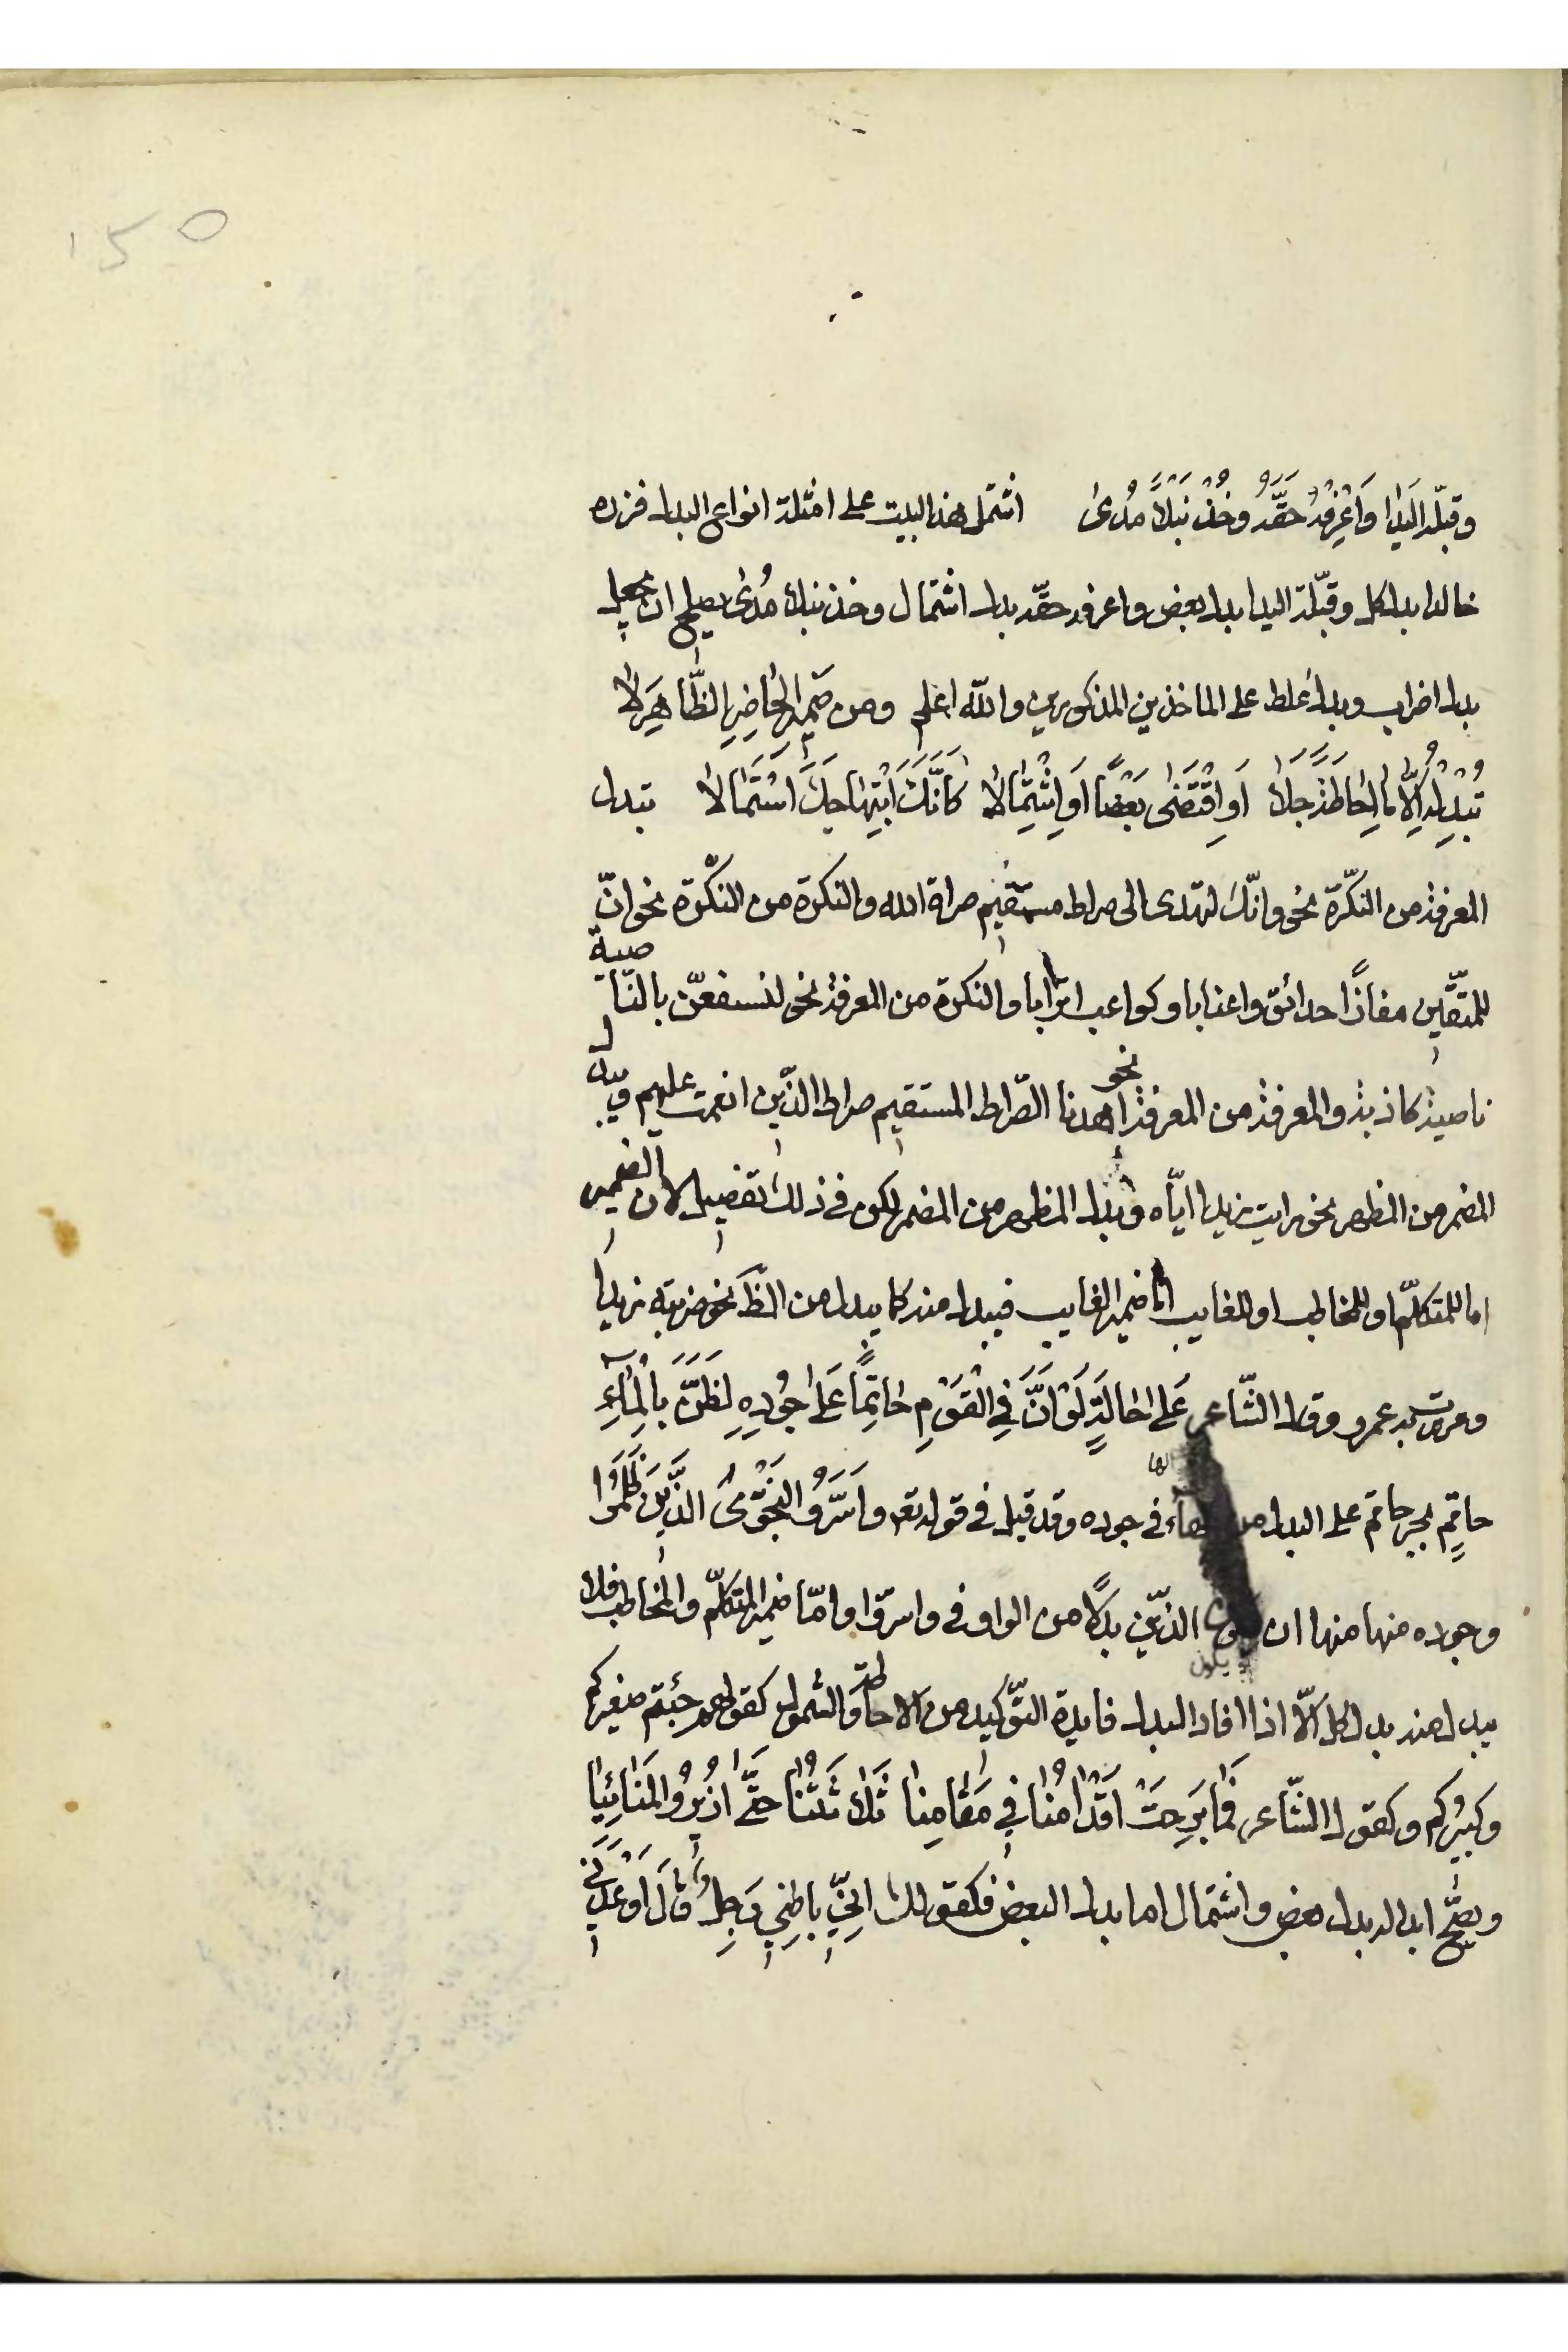 ١٥٠
وقبّله اليدا وَاعْرِفْهُ حَقَّهُ وخُذْ نَبْلاً مُدىٰ اشتمل هذا البيت على امثلة انواع البدل فزره
خالدا بدل كل وقبّله اليدا بدل بعض واعرفه حقّه بدل اشتمال وخذ نبلا مُدىً يصلح ان يجعل
بدل اضراب وبدل غلط على الماخذين المذكورين والله اعلم ومن ضَمِيرِ الحَاضِرِ الظَّاهِرَ لا
تُبْدِلْهُ اِلّا ما اِحَاطَةً جَلا اَوِ اقْتَضَىٰ بَعْضًا اَوِ اشْتِمَالا كَانَّكَ ابْتِهَاجَكَ اسْتَمَالا تبدل
المعرفة من النكرة نحو وانّك لتهدى الى صراط مستقيم صراة الله والنكرة من النكرة نحو انّ
للمتقّين مفازًا حدائق واعنابا وكواعب اترابا والنكرة من المعرفة نحو لنسفعنّ بالنّاصية
ناصية كاذبة والمعرفة من المعرفة نحو اهدنا الصّراط المستقيم صراط الذّين انعمت عليهم ويبدل
المضمر من المظهر نحو رايت زيدا ايّاه ويبدل المظهر من المضمر لكن في ذلك تفصيل لان الضمير
اما للمتكلّم او للمخاطب او للغايب امّا ضمير الغايب فيبدل منه كما يبدل من الظّ نحو ضربته زيدا
ومررت به عمرو وقال الشّاعر عَلىٰ حَالَةٍ لَوْ اَنَّ فِي الْقَوْمِ حَاتِمًا عَلىٰ جُودِهِ لَظَنَّ بِالْمَاءِ
حاتِمٍ بجر حاتم على البدل من الهاء في جوده وقد قيل في قوله تعه واَسَرُّو النَجْوىٰ الذَّينَ ظَلَمُوا
وجوده منها منها ان يكون الذّين بدلًا من الواو في واسرّوا وامّا ضمير المتكلّم والمخاطب فلا
يبدل منه بدل كل الّا اذا افاد البدل فايدة التّوكيد من الاحاطة والشمول كقولهم جئتم صغيركم
وكبيركم وكقول الشّاعر فَمَا بَرِحَتْ اَقْدَامُنَا فِي مَقَامِنَا ثَلاثَتُنَا حَتَّىٰ اُزِيرُوا المَنَائِيَا
ويصحّ ابداله بدل بعض واشتمال اما بدل البعض فكقولك اِنّي بَاطِنِي وَجِلُ وَقَالَ اَوْعَدَنِي